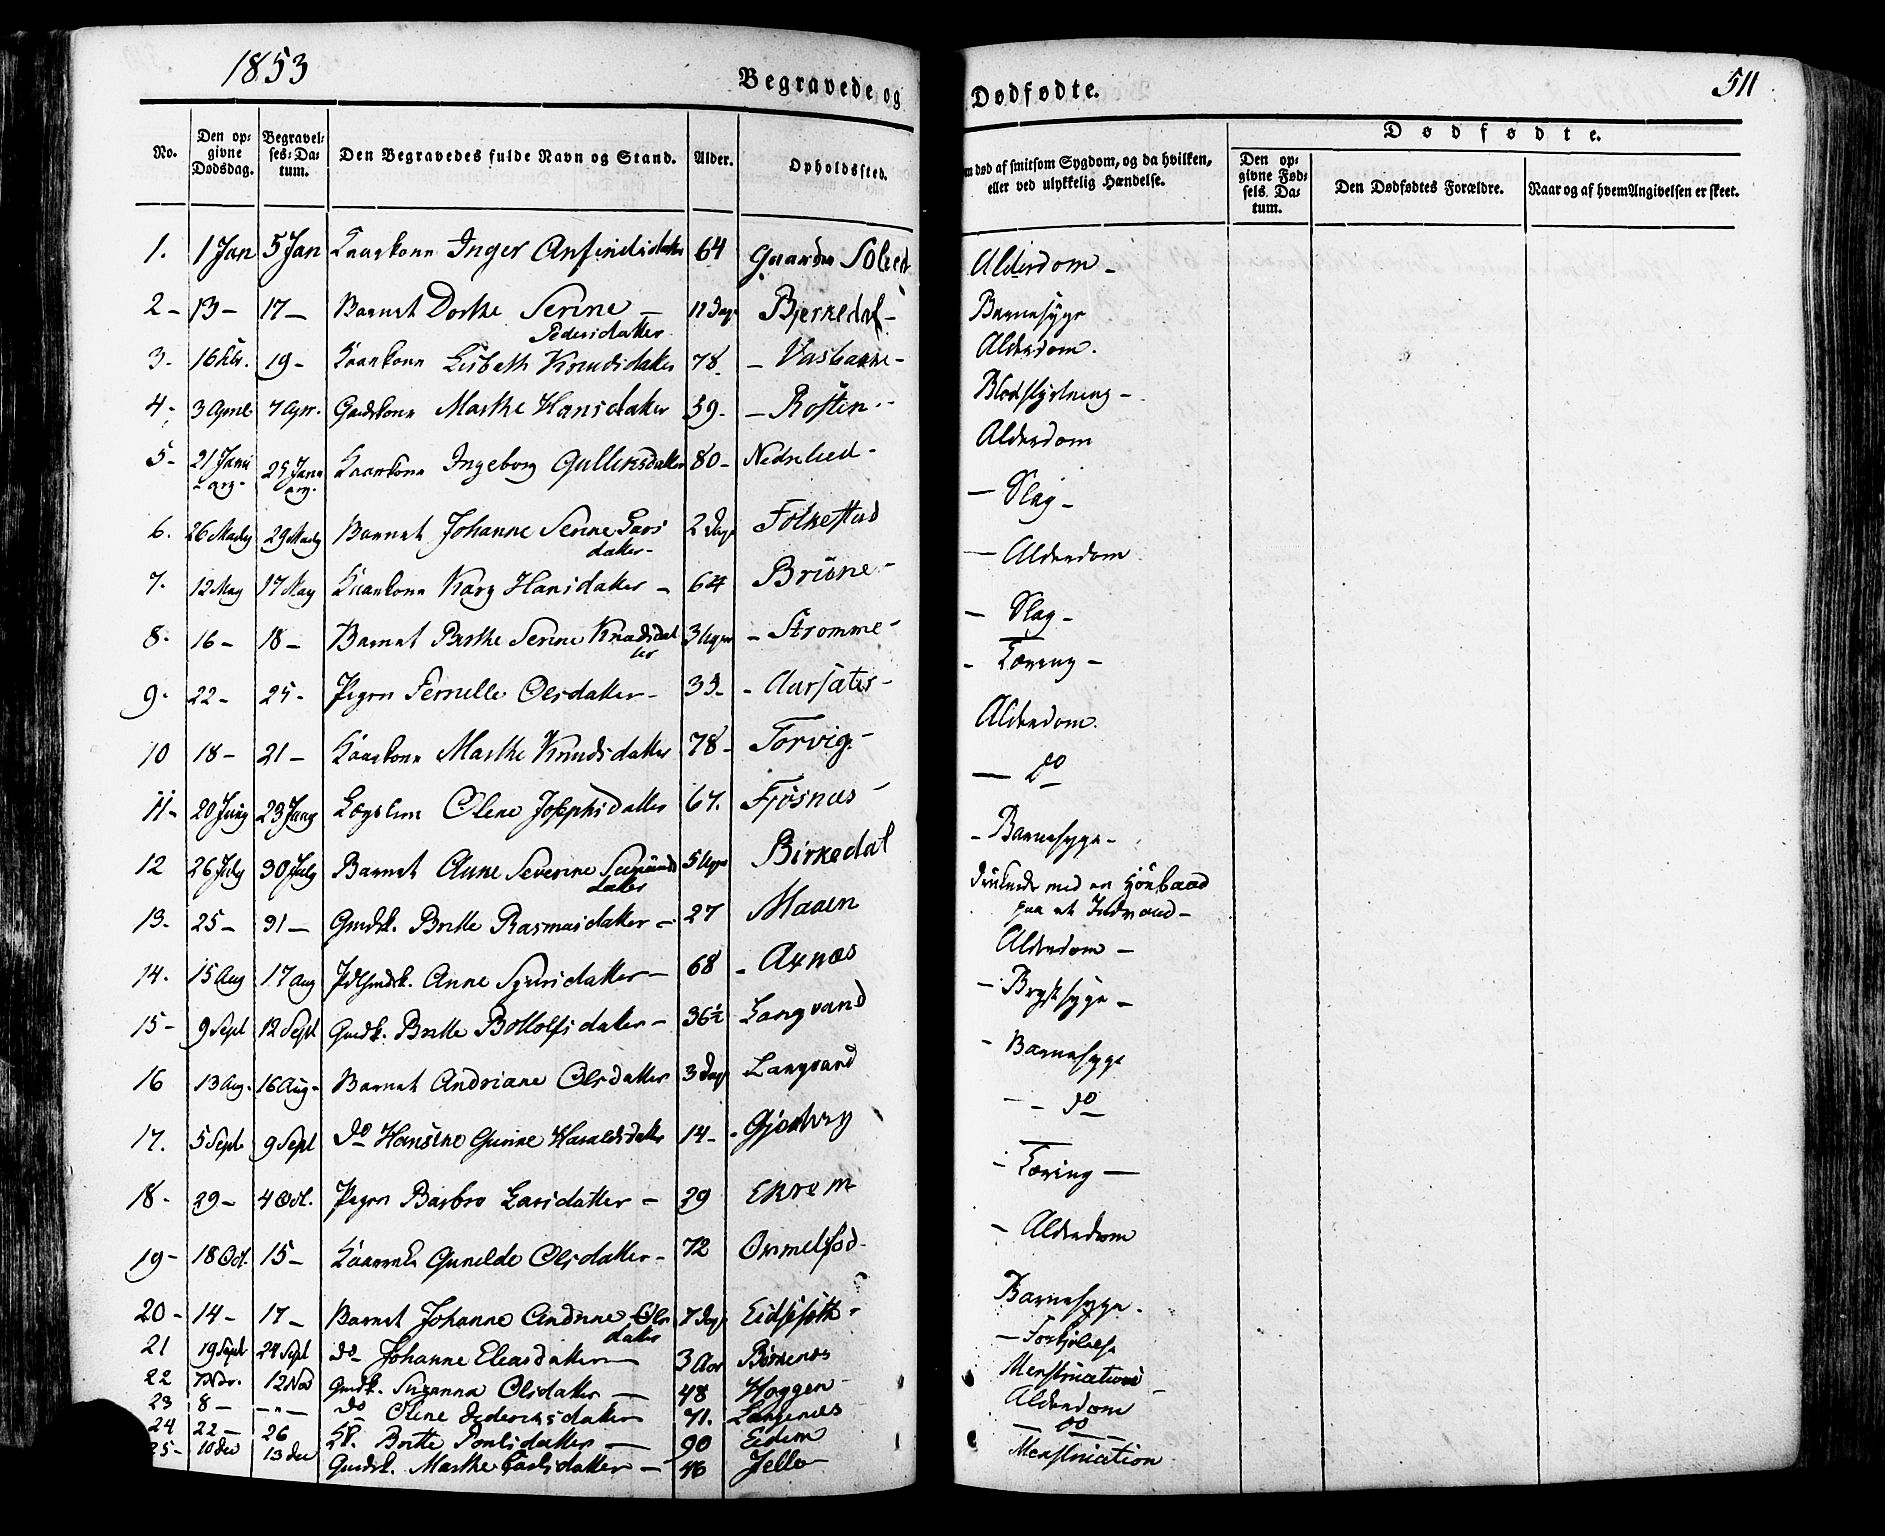 1853
Begravede og Dødfødte.
511
Dødfødte.
No.
Den opgivne Dødsdag.
Begravelses-Datum.
Den Begravedes fulde Navn og Stand.
Alder.
Opholdssted.
m død af smitsom Sygdom, og da hvilken, eller ved ulykkelig Hændelse.
Den opgivne Fødsels Datum.
Den Dødfødtes Forældre.
Naar og af hvem Angivelsen er skeet.
1. 1 Jan 5 Jan Kaarkone Inger Anfindsdatter 64 Alderdom -
2 - 13 - 17 - Barnet Dorthe Serine - Pedersdatter 11 Dage Bjerkedal - Barnesyge
3 - 16 Febr. 19 - Kaarkone Lisbeth Knudsdatter 78 - Alderdom.
4 - 3 April 7 Apr. Gmdskone Marthe Hansdatter 59 - - Rosten - Blodstyrtning -
5 - 21 Janu arq - 25 Janu arq - Kaarkone Ingeborg Gulliksdatter 80 - Nedrelied - Alderdom
6. 26 Marty 29 Marty Barnet Johanne Serine Larsdatter - 2 Dage Folkestad - Slag -
7. 12 May 17 May Kaarkone Kary Hansdatter - 64 Brüne - - Alderdom
8 - 16 - 18 - Barnet Berthe Serine Knudsdatter 3 Uger - Strømme - - Slag -
9 - 22 - 25 - Pigen Pernelle Olsdatter - 33 - - Aarsæter - - Tæring -
10 18 - 21 - Kaarkone Marthe Knudsdatter 78 - Torvig - Alderdom.
11 - 20 Juny 23 Juny Lægslem Olene Josephsdatter 67. Fjøsnæs - - do
12 26 July 30 July Barnet Anne Severine datter 5 Uger Birkedal - Barnesyge -
13. 25 - 31 - Gmdsk. Britte Rasmusdatter - 27 Maaen med en paa et
14. 15 Aug 17 Aug Anne Sjursdatter - 68 - Aknæs Alderdom -
15 - 9 Sept 12 Sept Gmdsk. Britte Bottolfsdatter - 36½ Langvand - Brystsyge -
16 13 Aug. 16 Aug - Barnet Andriane Olsdatter 3 Dage Langvand - Barnesyge
17. 5 Sept 9 Sept do Hansine Gurine Haraldsdatter 14 - - - do
18 - 29 - 4 Oct. Pigen Barbro Larsdatter - 29 Ekrem - Tæring -
19 - 18 Oct. 15 - Gunelde Olsdatter - 72 - Alderdom
20 - 14 - 17 - Barnet Johanne Andrine Olsdatter 7 Dage - Barnesyge.
21 19 Sept 24 Sept do Johanne Eleasdatter - 3 Aar - Forkjølelse
22 7 Nov. 12 Nov Gmdsk. Susanna Olsdatter - 48 Hoggen - Menstruation -
23 8 - - " - do Olene Dideriksdatter 71. Langenæs Alderdom
24 22 - 26 Britte Poulsdatter - 90 Eidem - do -
25 - 10 Dec 13 Dec Gmdsk. Marthe Carlsdatter - 46 Menstruation